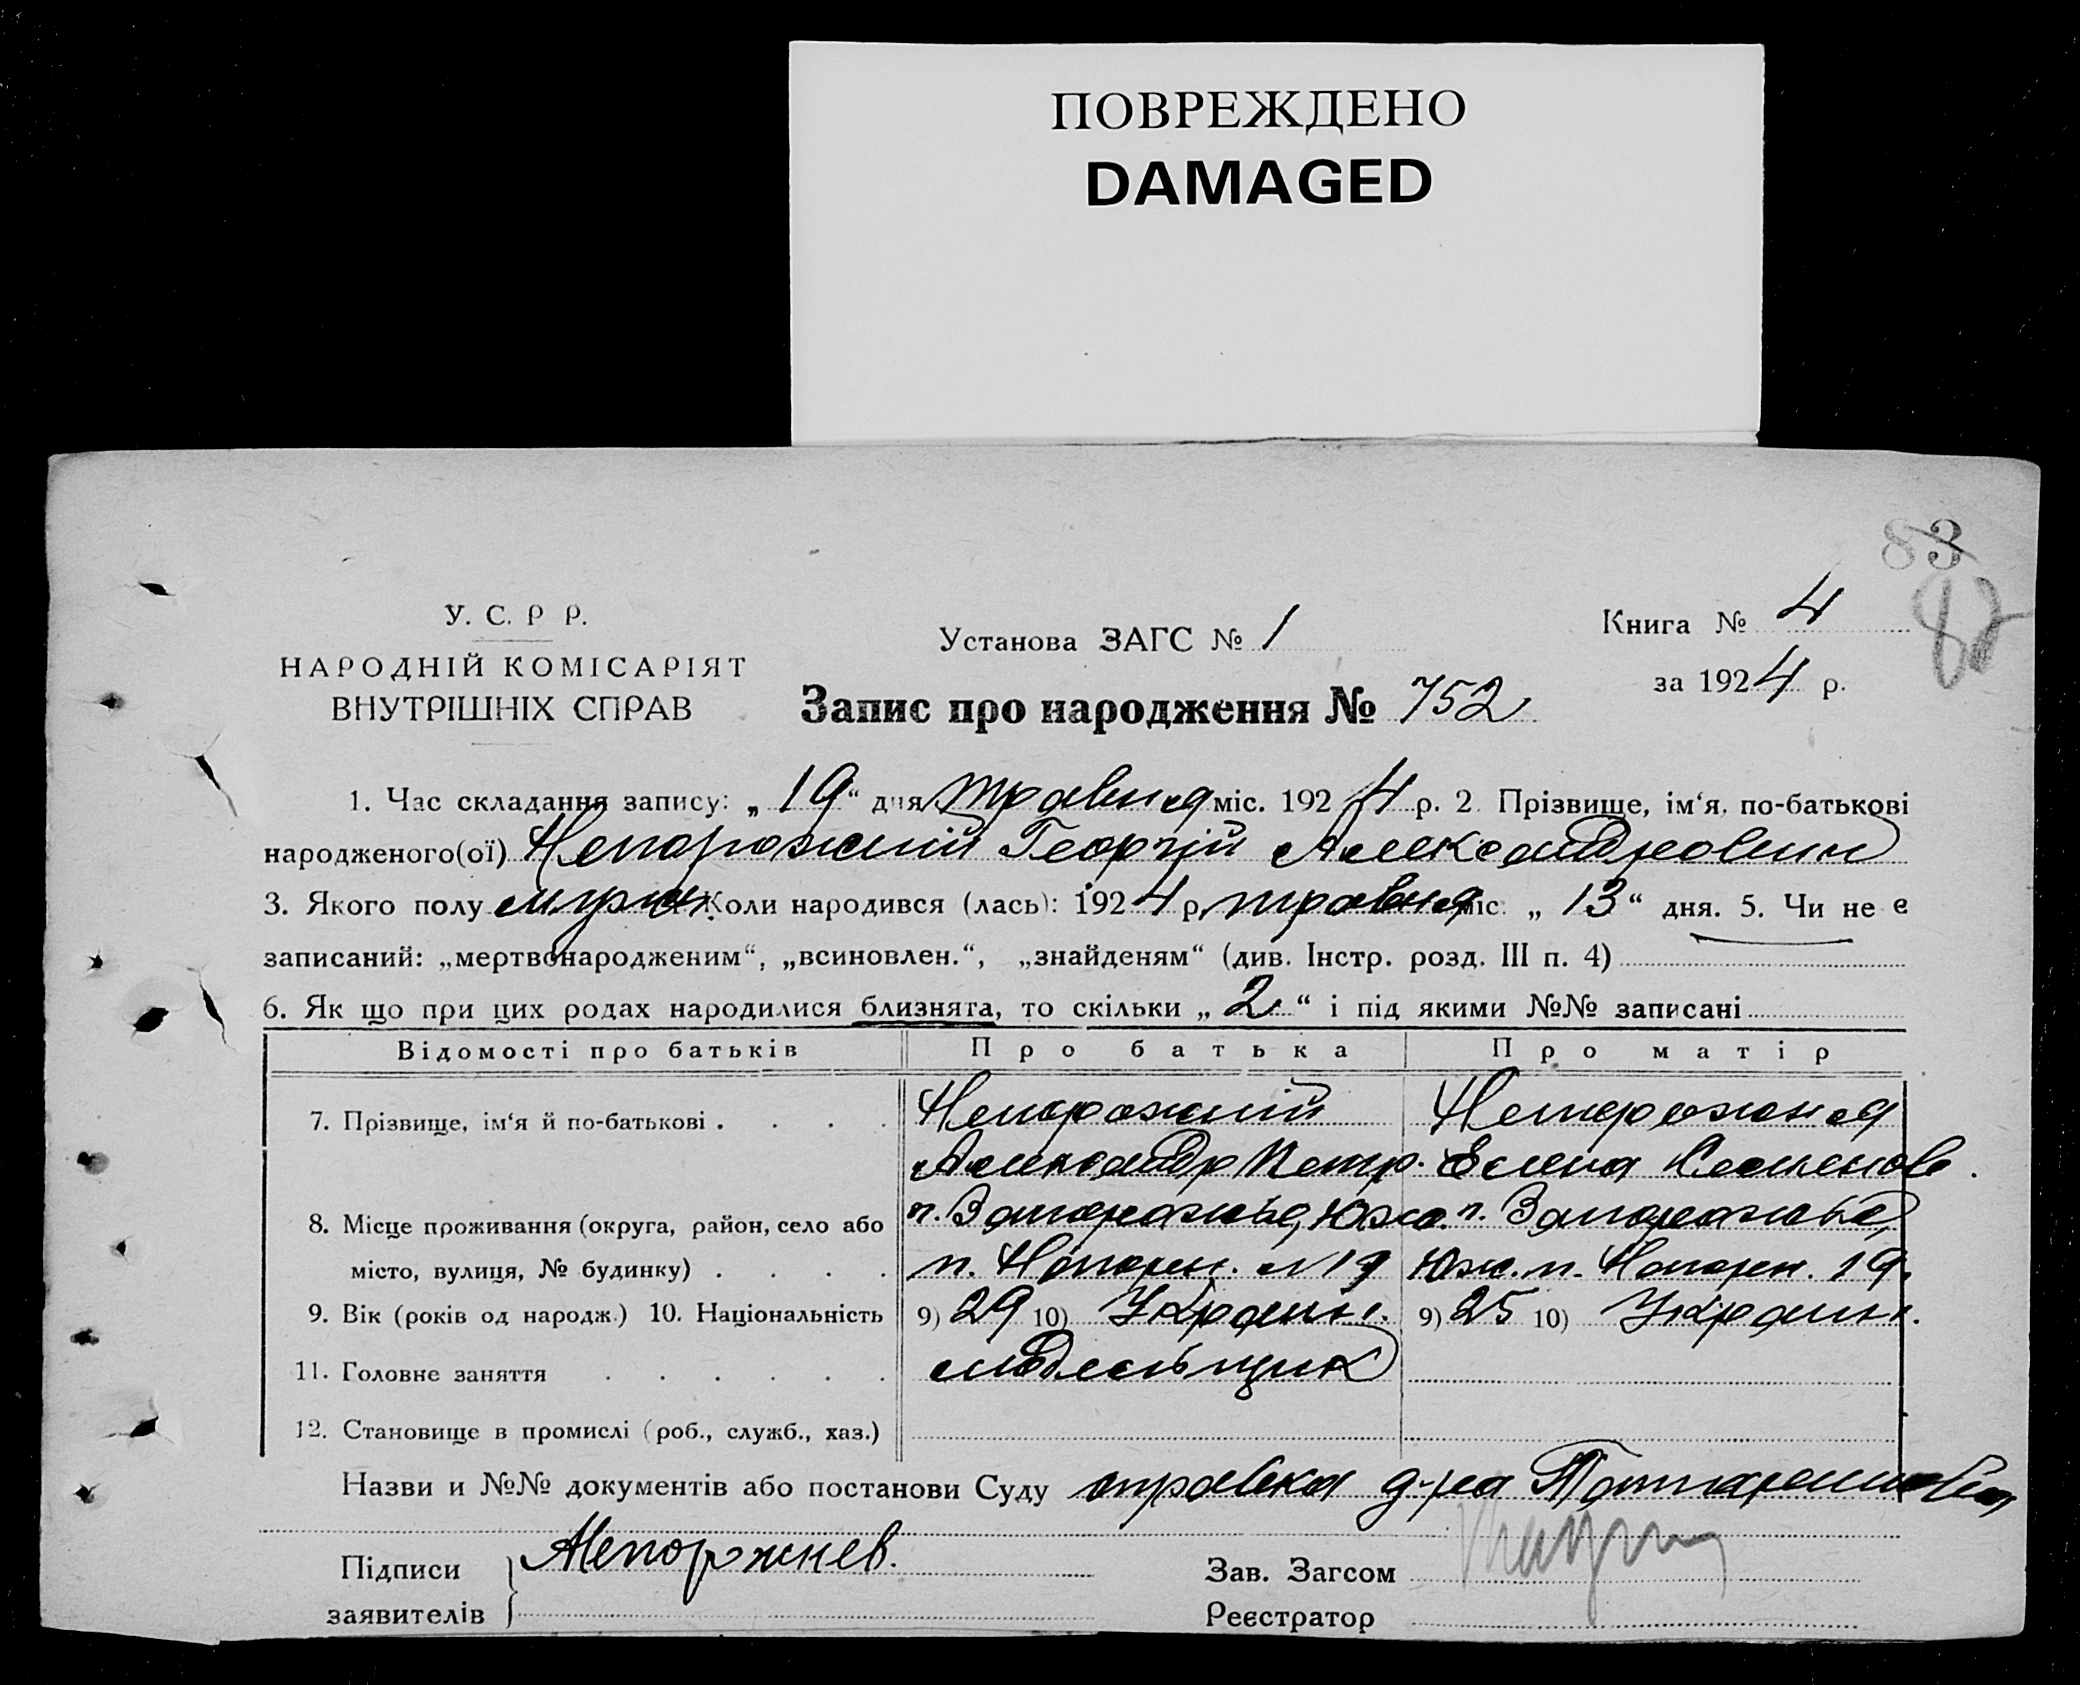 ПОВРЕЖДЕНО
DAMAGED
83
82
У. С. Р Р.
НАРОДНІЙ КОМІСАРІЯТ
ВНУТРІШНІХ СПРАВ
Установа ЗАГС № 1
Запис про народження № 752
Книга № 4
за 1924 р.
1. Час складання запису: „19“ дня травня міс. 1924 р. 2 Прізвище, ім‘я, по-батькові
народженого(ої) Непорожній Георгій Александрович
3. Якого полу мужч. Коли народився (лась): 1924 р. травня міс. „13“ дня. 5. Чи не є
записаний: „мертвонародженим“, „всиновлен.“, „знайденям“ (див. Інстр. розд. III п. 4)
6. Як що при цих родах народилися близнята, то скільки „2“ і під якими №№ записані
Відомості про батьків Про батька Про матір
7. Прізвище, ім‘я й по-батькові . . . . Непорожній Непорожняя
Александр Петр. Елена Семенов.
8. Місце проживання (округа, район, село або г. Запорожье, Южн. г. Запорожье,
місто, вулиця, № будинку) . . . . п. №19 Юж. п. 19.
9. Вік (років од народж.) 10. Національність 9) 29 10) Украин. 9) 25 10) Украин.
11. Головне заняття . . . . . . модельщик
12. Становище в промислі (роб., служб., хаз.)
Назви и №№ документів або постанови Суду справка д-ра
Підписи
заявителів
Непорожнев.
Зав. Загсом
Реєстратор